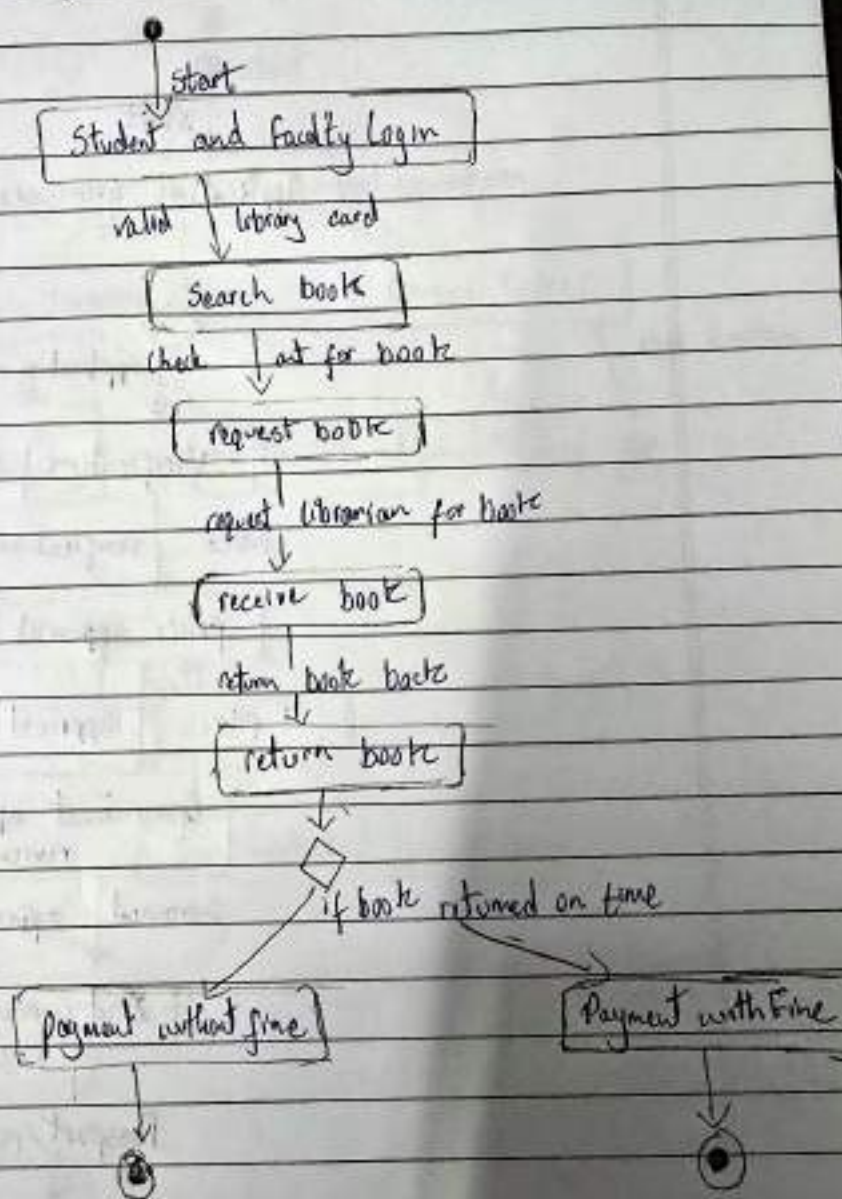 start
Student and Faculty Login
valid library card
Search book
check out for book
request book
request librarian for book
receive book
return book back
return book
if book returned on time
payment without fine
Payment with Fine